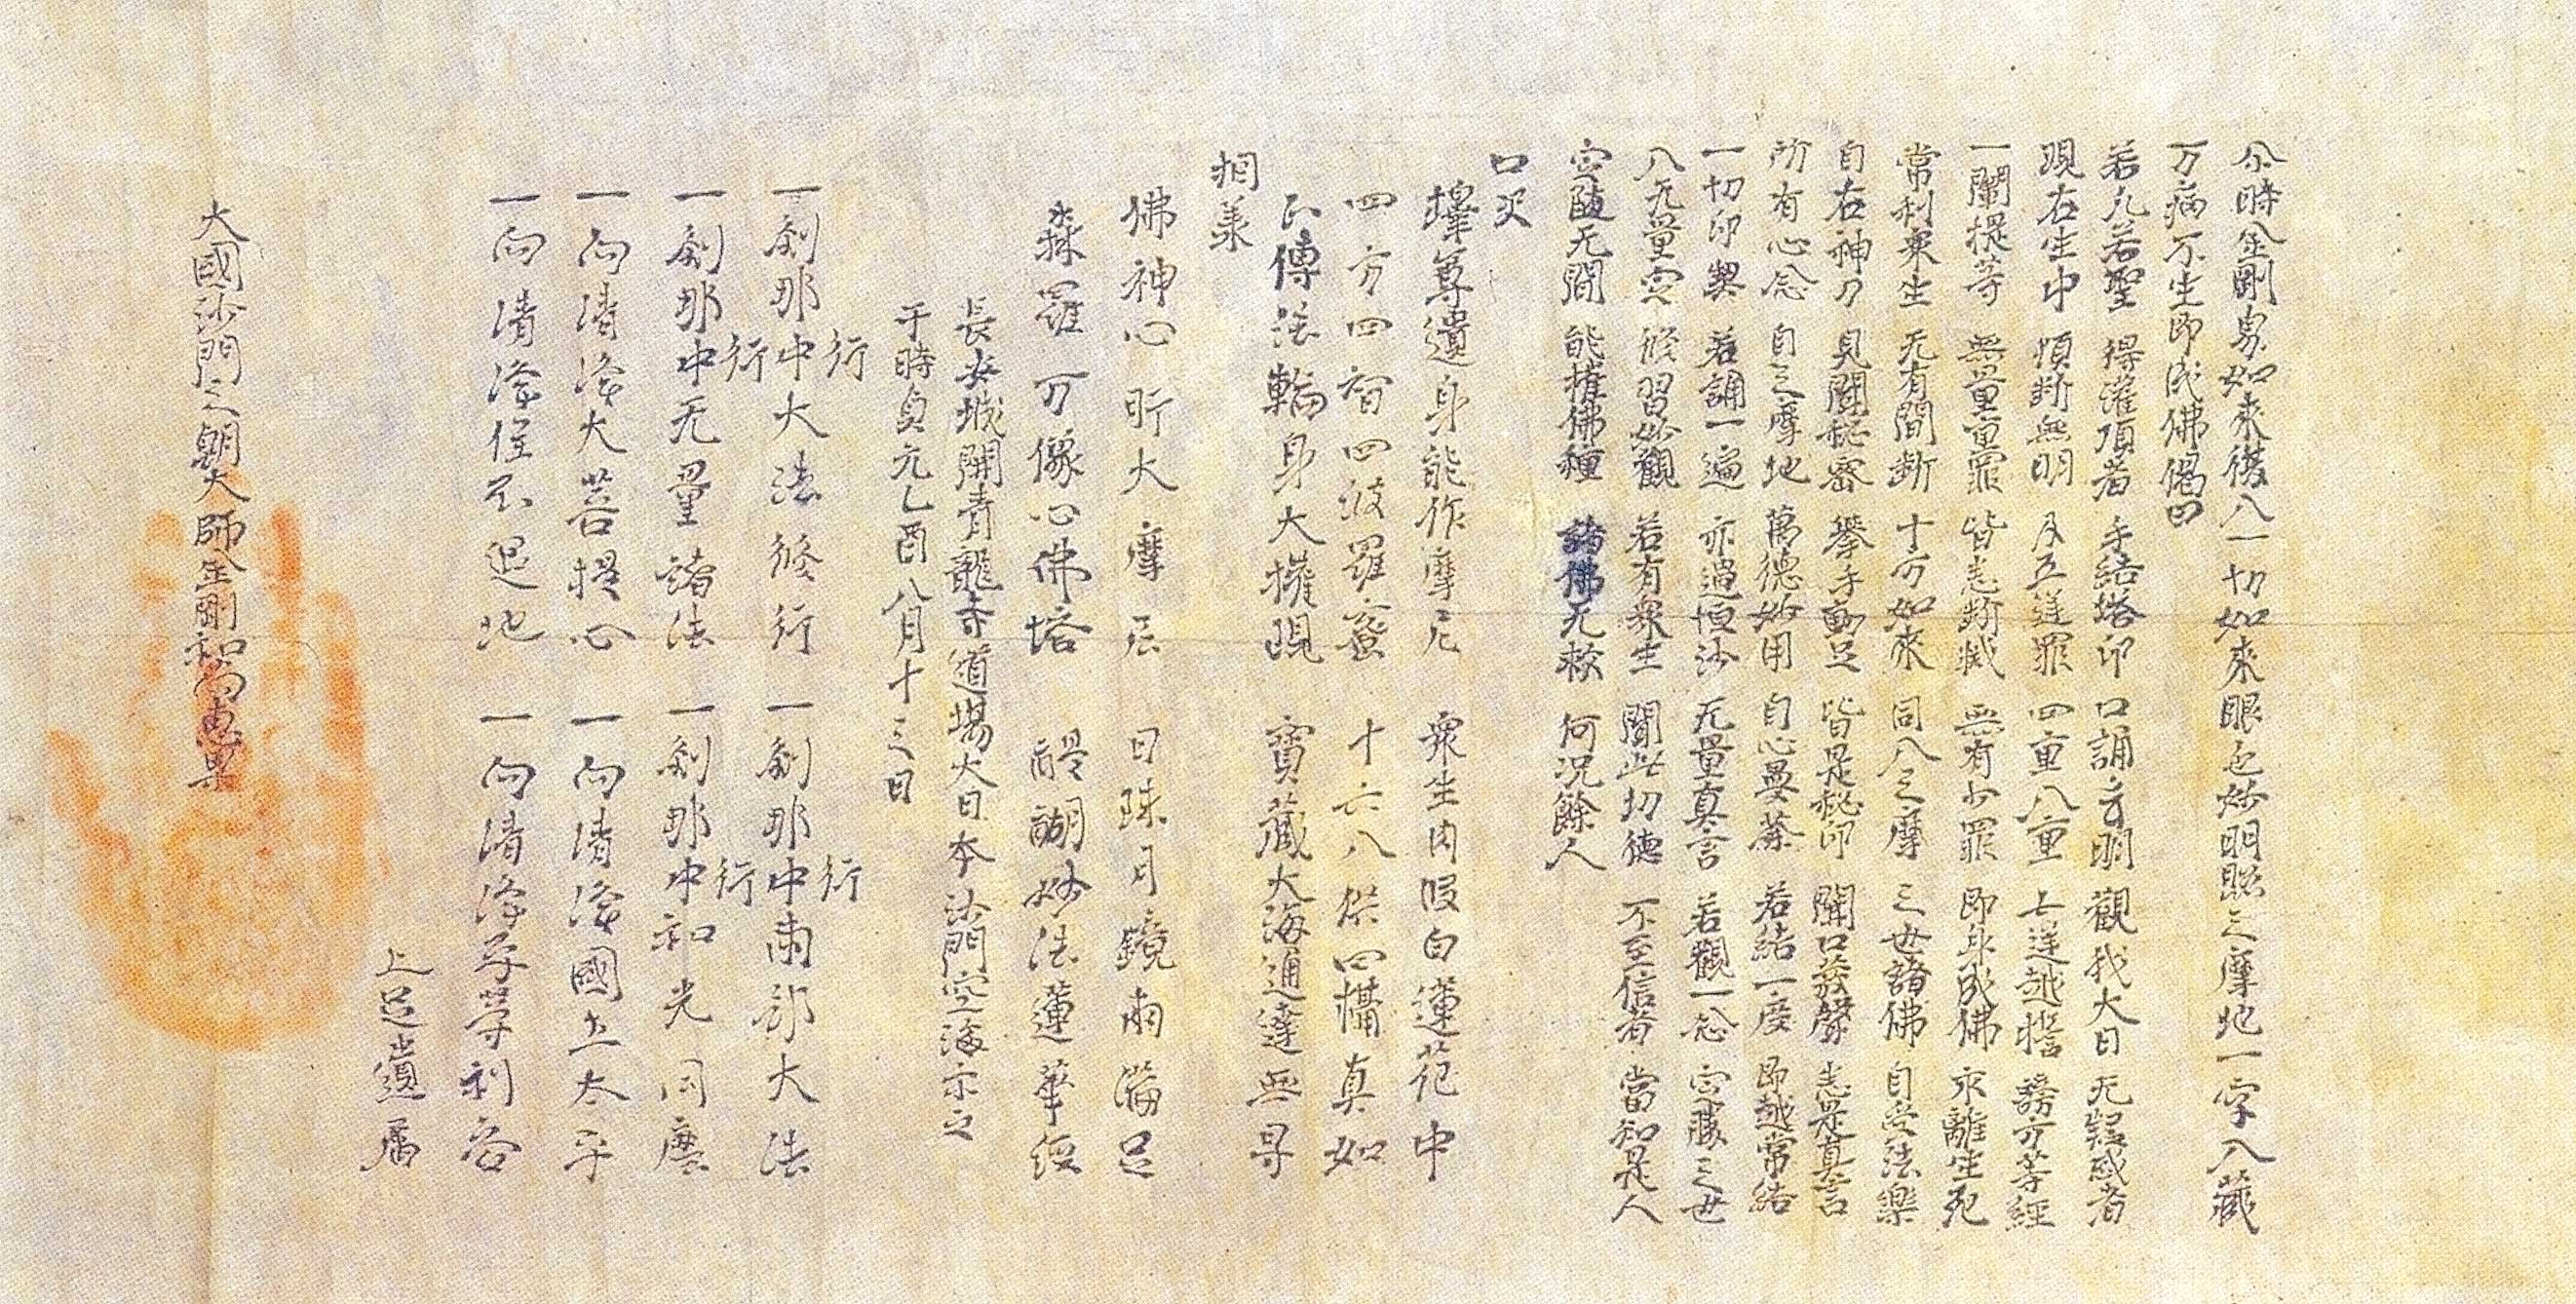 尒時金剛界如來從入一切如來眼色妙明照三摩地一字入藏
万病不生即成佛偈曰
若凡若聖 得灌頂者 手結塔印 口誦言明 觀我大日 无疑惑者
現在生中 頓斷無明 五逆罪 四重八重 七逆越誓 謗方等經
一闡提等 無量重罪 皆悉斷滅 無有少罪 即身成佛 永離生死
常利衆生 无有間斷 十方如來 同入三摩 三世諸佛 自受法樂
自在神力 見聞秘密 擧手動足 皆是秘印 開口發聲 悉是真言
所有心念 自三摩地 萬德妙用 自心曼荼 若結一度 即越常結
一切印契 若誦一遍 亦過恒沙 无量真言 若觀一念 定勝三世
八无量定 修習妙觀 若有衆生 聞此切德 不至信者 當知是人
定墮无間 能摧佛種 諸佛无救 何况餘人
口又
尊遺身能作摩尼 衆生肉段白蓮花中
四方四智四波羅蜜 十六八供四攝真如
正傳法輪身大摧現 寶藏大海通達無导
相義
佛神心 大摩尼 日珠月鏡兩輪足
森羅万像心佛塔 醍醐妙法蓮華經
長安城開青龍寺道場大日本沙門空海示之
于時貞元乙酉八月十三日
行 行
一刹那中大法修行 一刹那中兩部大法
行 行
一刹那中无量諸法 一刹那中和光同塵
一向清淨大菩提心 一向清淨國土太平
一向清淨住不退地 一向清淨平等利
上足遺属
大國沙門三朝大師金剛和尚惠果